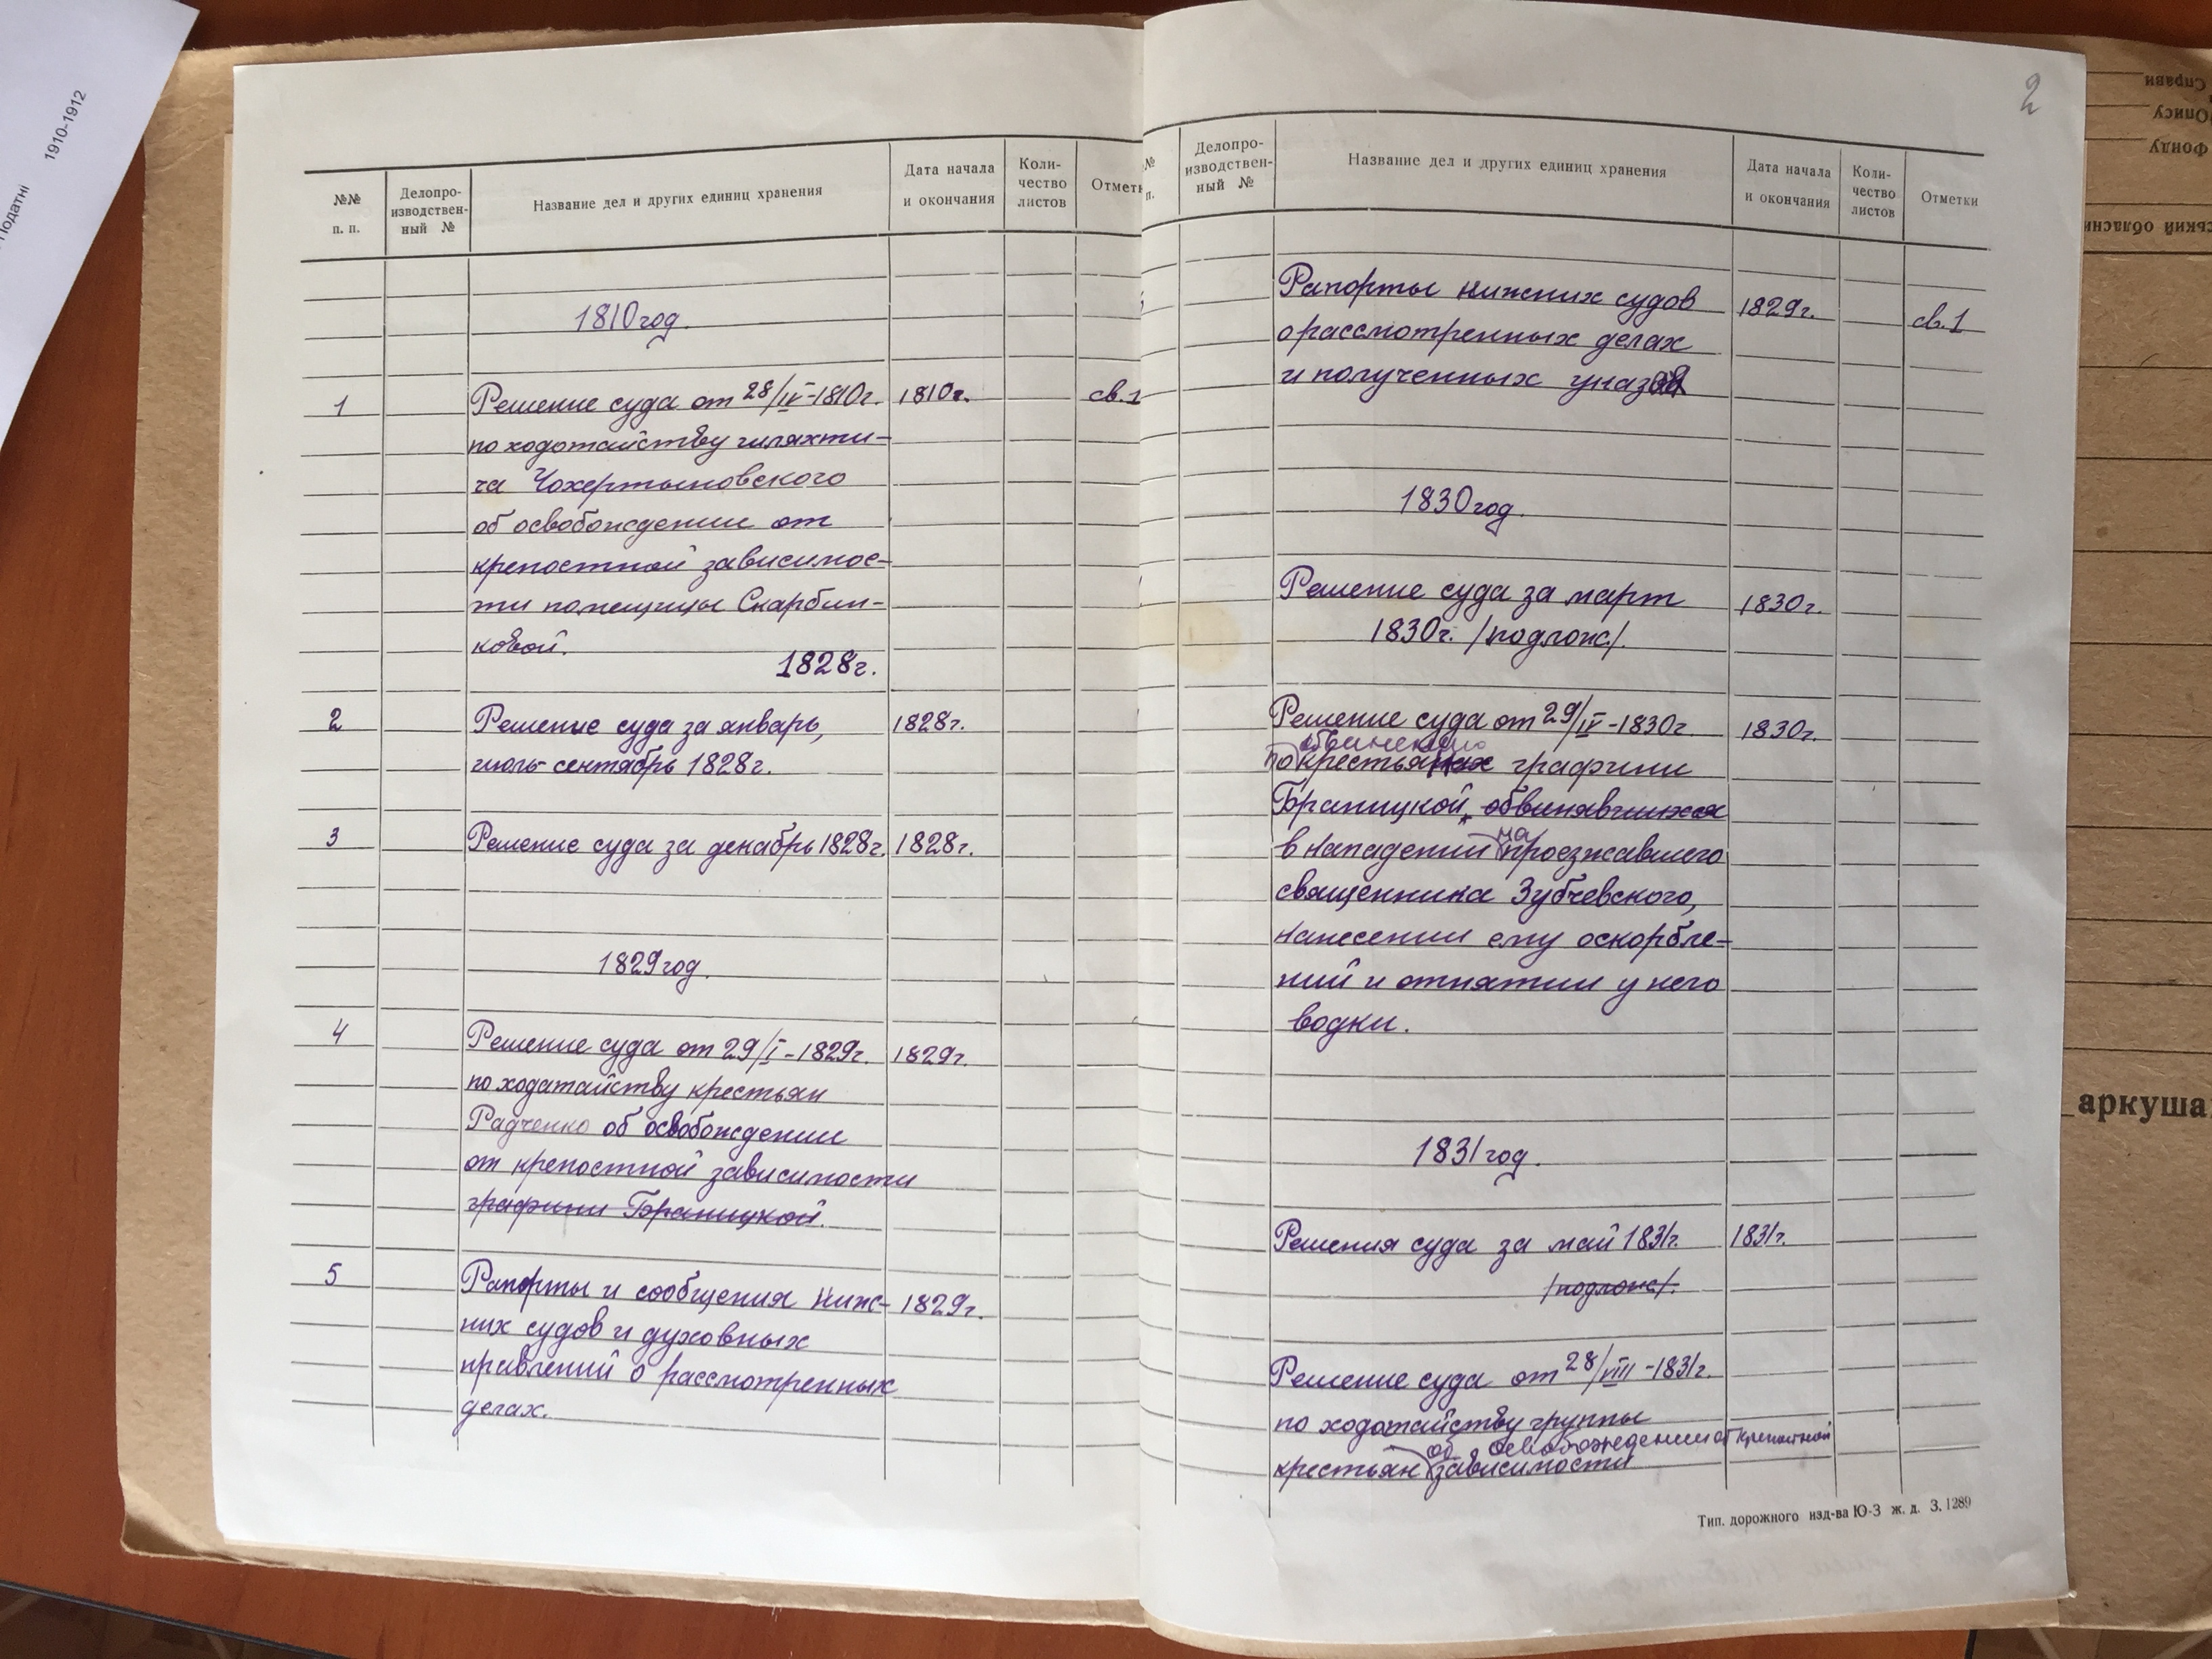 1910-1912
Податні
№№
п. п.
Делопро-
изводствен-
ный №
Название дел и других единиц хранения
Дата начала
и окончания
Коли-
чество
листов
Отмет
1810 год.
1 Решение суда от 28/IV-1810г. 1810г. св.1
по ходотайству шляхти-
ча Чохертыновского
об освобождении от
крепостной зависимос-
ти помещицы Скарбин-
ковой.
1828г.
2 Решение суда за январь, 1828г.
июль-сентябрь 1828г.
3 Решение суда за декабрь 1828г. 1828г.
1829 год.
4 Решение суда от 29/I-1829г. 1829г.
по ходатайству крестьян
Радченко об освобождении
от крепостной зависимости
графини Браницкой.
5 Рапорты и сообщения ниж- 1829г.
них судов и духовных
правлений о рассмотренных
делах.
2
№
п.
Делопро-
изводствен-
ный №
Название дел и других единиц хранения
Дата начала
и окончания
Коли-
чество
листов
Отметки
Рапорты нижних судов 1829г. св.1
о рассмотренных делах
и полученных указ
1830 год.
Решение суда за март 1830г.
1830г. /подлож/.
Решение суда от 29/IV-1830г 1830г.
обвинению
по крестьянах графини
Браницкой, обвинявшихся
в нападении на проезжавшего
священника Зубчевского,
нанесении ему оскорбле-
ний и отнятии у него
водки.
1831 год.
Решения суда за май 1831г. 1831г.
/подлож/.
Решение суда от 28/VIII-1831г.
по ходотайству группы
об освобождении от крепостной
крестьян зависимости
Тип. дорожного изд-ва Ю-З ж. д. З. 1289
Справи
Опису
Фонду
ський обласн
аркуша